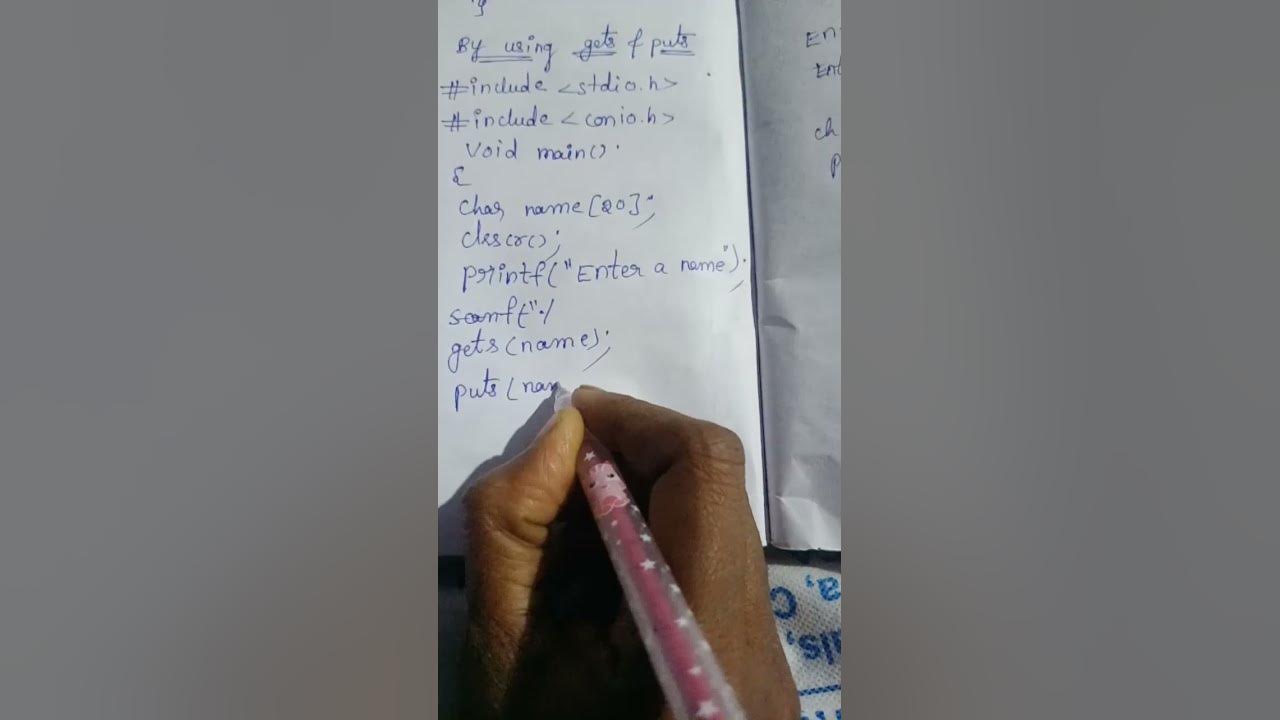 }
By using gets & puts
#include <stdio.h>
#include <conio.h>
void main()
{
char name[20];
clrscr();
printf("Enter a name");
scanf("%
gets(name);
puts(nam
En
Ent
ch
p